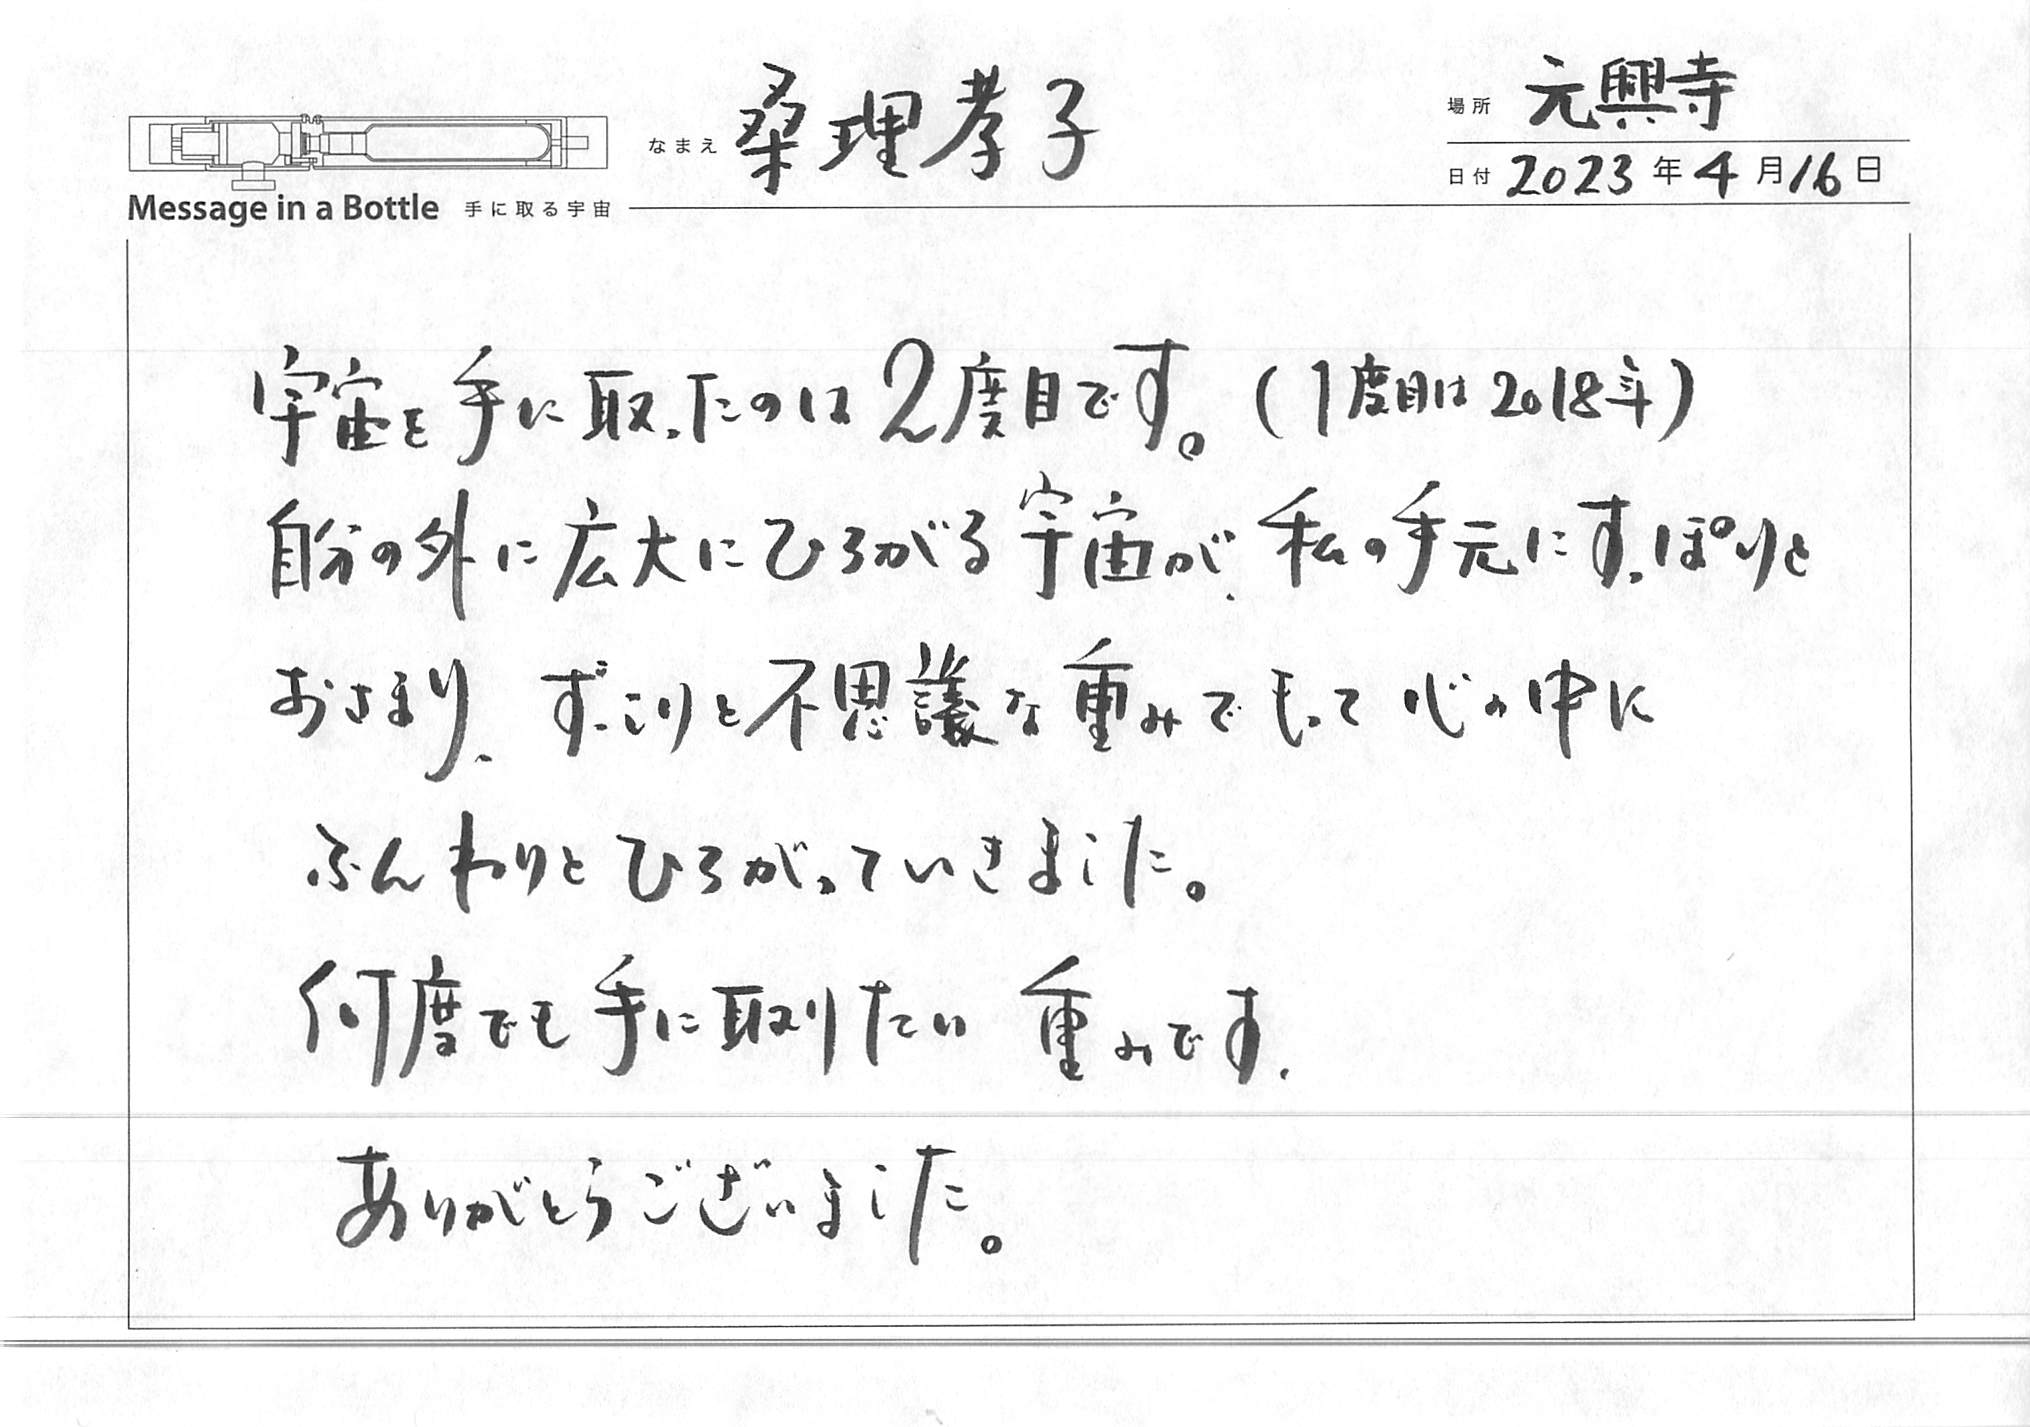 なまえ 桑理孝子
場所 元興寺
日付 2023年4月16日
Message in a Bottle 手に取る宇宙
宇宙を手に取ったのは2度目です。(1度目は2018年)
自分の外に広大にひろがる宇宙が、私の手元にすっぽりと
おさまり、ずっこりと不思議な重みでもって心の中に
ふんわりとひろがっていきました。
何度でも手に取りたい重みです。
ありがとうございました。